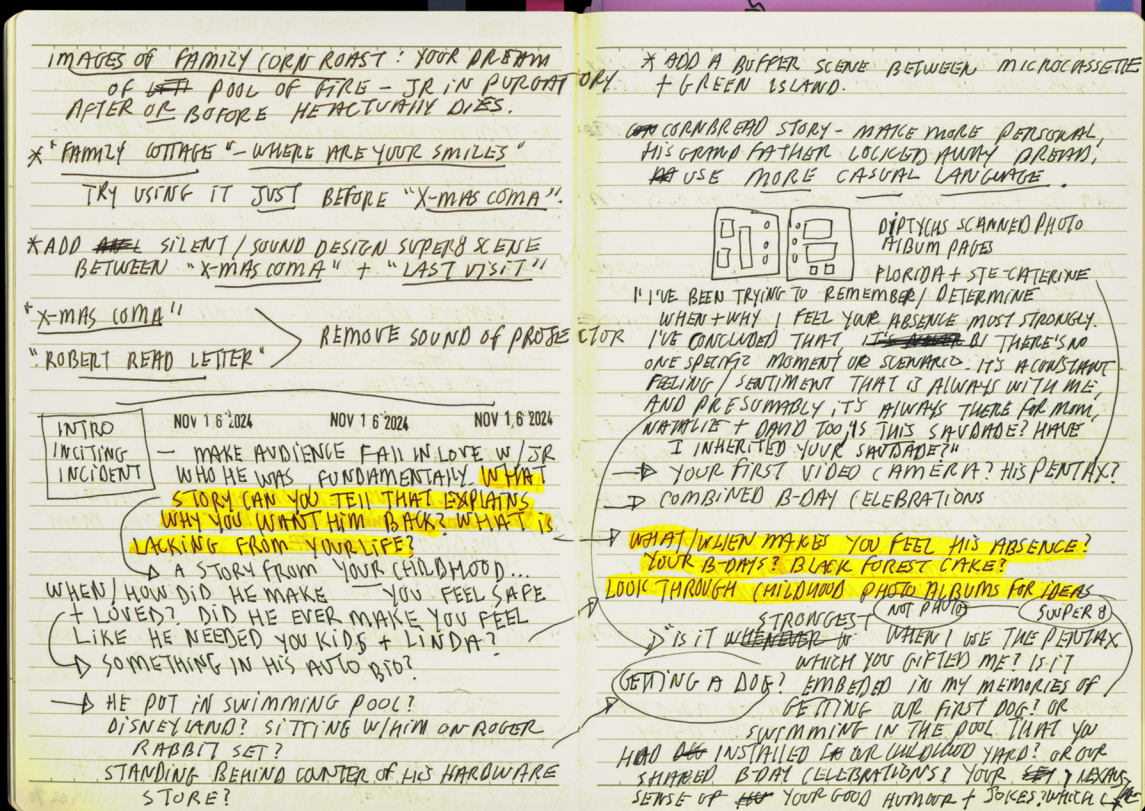 IMAGES OF FAMILY CORN ROAST: YOUR DREAM
OF POOL OF FIRE - JR IN PURGATORY
AFTER OR BOFORE HE ACTUALLY DIES.
* "FAMILY COTTAGE" - WHERE ARE YOUR SMILES"
TRY USING IT JUST BEFORE "X-MAS COMA".
* ADD SILENT / SOUND DESIGN SUPER8 SCENE
BETWEEN "X-MAS COMA" + "LAST VISIT"
"X-MAS COMA"
"ROBERT READ LETTER"
REMOVE SOUND OF PROJECTOR
NOV 1 6 2024 NOV 1 6 2024 NOV 1 6 2024
INTRO
INCITING
INCIDENT
- MAKE AUDIENCE FALL IN LOVE W/ JR
WHO HE WAS FUNDAMENTALLY. WHAT
STORY CAN YOU TELL THAT EXPLAINS
WHY YOU WANT HIM BACK? WHAT IS
LACKING FROM YOUR LIFE?
A STORY FROM YOUR CHILDHOOD...
WHEN / HOW DID HE MAKE YOU FEEL SAFE
+ LOVED? DID HE EVER MAKE YOU FEEL
LIKE HE NEEDED YOU KIDS + LINDA?
SOMETHING IN HIS AUTO BIO?
HE PUT IN SWIMMING POOL?
DISNEYLAND? SITTING W/HIM ON ROGER
RABBIT SET?
STANDING BEHIND COUNTER OF HIS HARDWARE
STORE?
* ADD A BUFFER SCENE BETWEEN MICROCASSETTE
+ GREEN ISLAND.
CORNBREAD STORY - MAKE MORE PERSONAL,
HIS GRAND FATHER LOCKED AWAY BREAD,
USE MORE CASUAL LANGUAGE.
DIPTYCHS SCANNED PHOTO
ALBUM PAGES
FLORIDA + STE-CATERINE
"I'VE BEEN TRYING TO REMEMBER / DETERMINE
WHEN + WHY I FEEL YOUR ABSENCE MOST STRONGLY.
I'VE CONCLUDED THAT, THERE'S NO
ONE SPECIFIC MOMENT OR SCENARIO. IT'S A CONSTANT
FEELING / SENTIMENT THAT IS ALWAYS WITH ME,
AND PRESUMABLY IT'S ALWAYS THERE FOR MOM,
NATALIE + DAVID TOO. IS THIS SAUDADE? HAVE
I INHERITED YOUR SAUDADE?"
YOUR FIRST VIDEO CAMERA? HIS PENTAX?
COMBINED B-DAY CELEBRATIONS
WHAT/WHEN MAKES YOU FEEL HIS ABSENCE?
YOUR B-DAYS? BLACK FOREST CAKE?
LOOK THROUGH CHILDHOOD PHOTO ALBUMS FOR IDEAS
NOT PHOTO SUPER 8
STRONGEST
"IS IT WHENEVER WHEN I USE THE PENTAX
WHICH YOU GIFTED ME? IS IT
GETTING A DOG? EMBEDED IN MY MEMORIES OF
GETTING OUR FIRST DOG? OR
SWIMMING IN THE POOL THAT YOU
HAD INSTALLED OUR CHILDHOOD YARD? OR OUR
SHARED B-DAY CELEBRATIONS? YOUR
SENSE OF YOUR GOOD HUMOUR + JOKES? WHICH